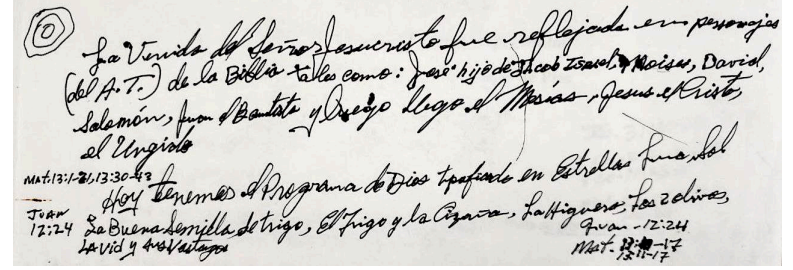 La Venida del Señor Jesucristo fue reflejada en personajes
(del A.T.) de la Biblia tales como: José hijo de Jacob Israel, Moises, David,
Salomón, Juan el Bautista y luego llego el Mesías, Jesus el Cristo,
el Ungido
Mat:13:1-31,13:30-43
Hoy tenemos el Programa de Dios en Estrellas Luna, Sol
Juan 12:24 La Buena Semilla de trigo, El Trigo y la Cizaña, La Higuera, Los 2 olivos,
La Vid y sus Vastagos Juan-12:24
Mat. 13:11-17